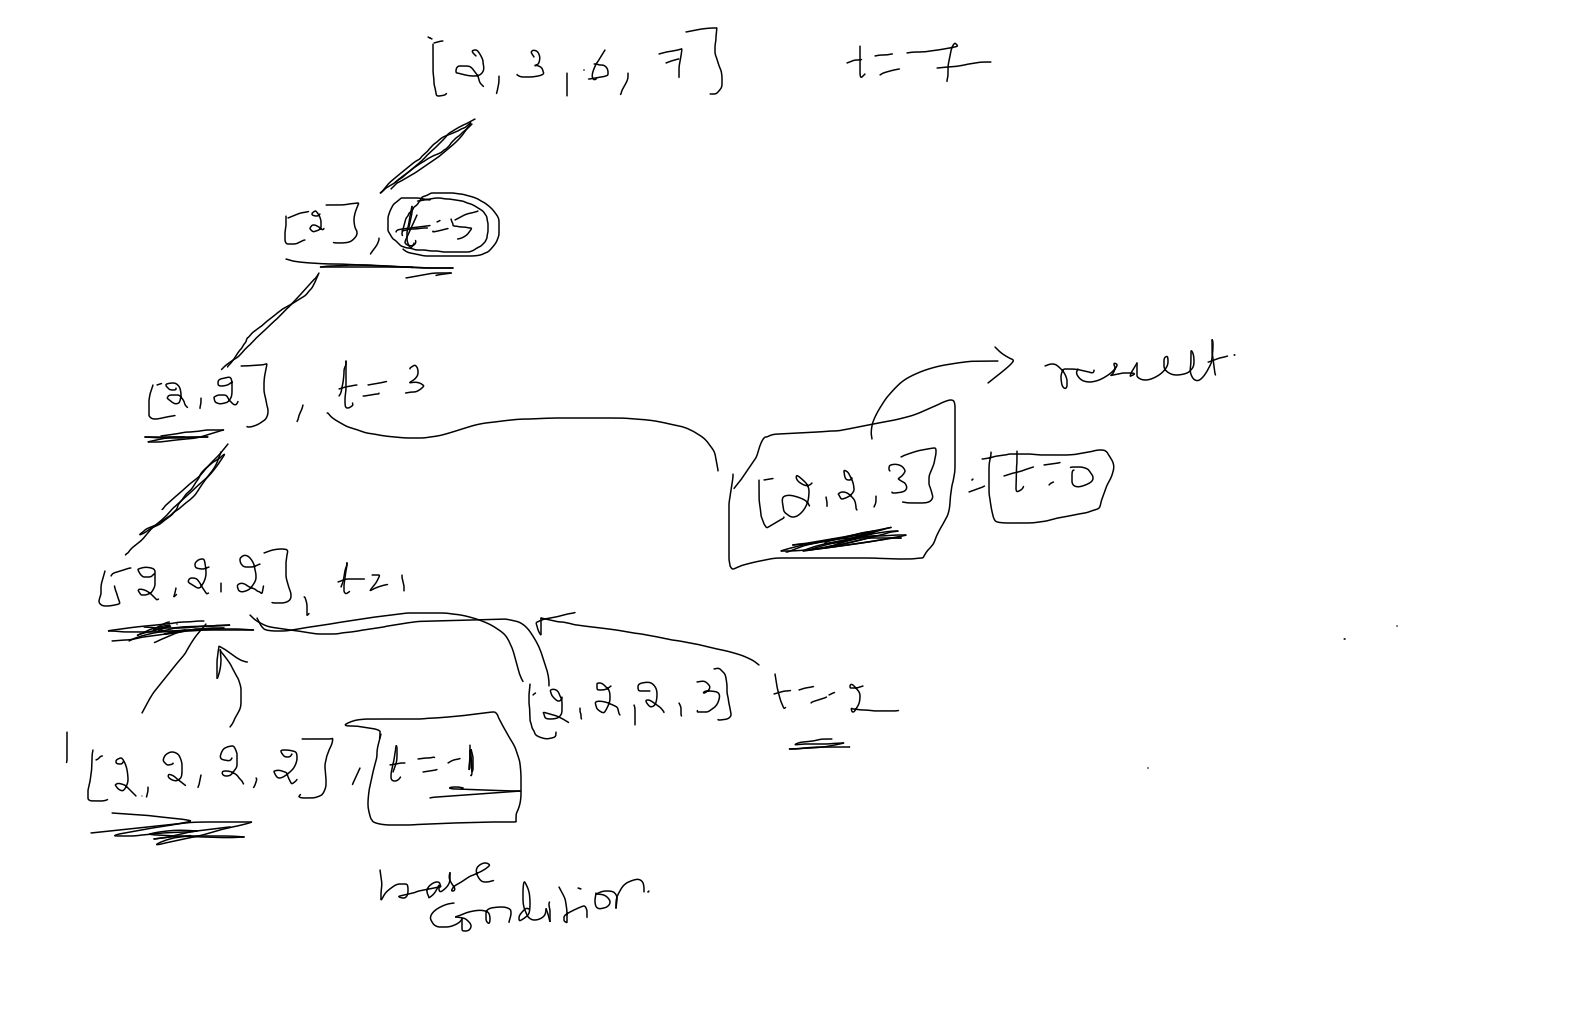 [2, 3, 6, 7] t=7
[2], t=5
[2,2], t=3
result.
[2,2,3] = t=0
[2,2,2], t=1
[2,2,2,3] t=-2
[2,2,2,2], t=-1
base
condition.